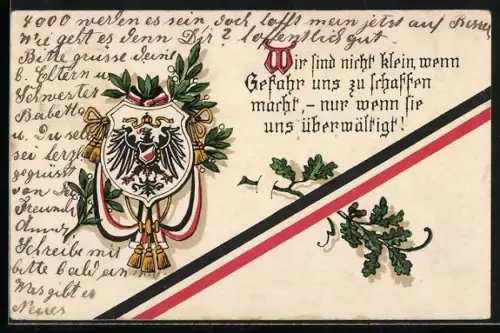 4000 werden es sein doch lass mein jetzt auf
Wie geht es denn Dir? hoffentlich gut
Bitte grüsse deine
l. Eltern u
Schwester
Babette
u. Du sei
herzl.
gegrüsst
von
Freund
Schreibe mir
bitte bald ein
Was gibt es
Neues
Wir sind nicht klein, wenn
Gefahr uns zu schaffen
macht, – nur wenn sie
uns überwältigt!